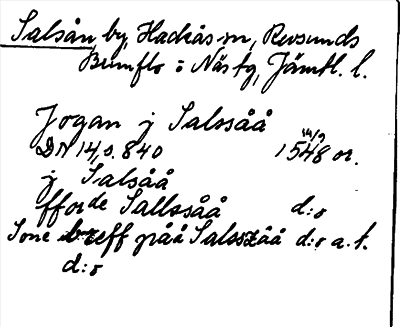 Salsån, by, Hackås sn, Revsunds
Brunflo o Näs tg, Jämtl. l.
Jogan j Salssåå
14/9
DN 14, s. 840 1548 or.
j Salsåå
fforde Sallssåå d:o
Sone breff påå Salsszåå d:o a. t.
d:o